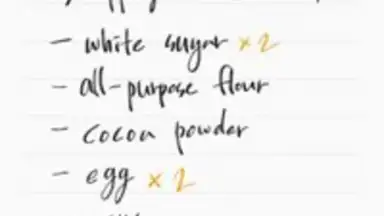 - white sugar × 2
- all-purpose flour
- cocoa powder
- egg × 2